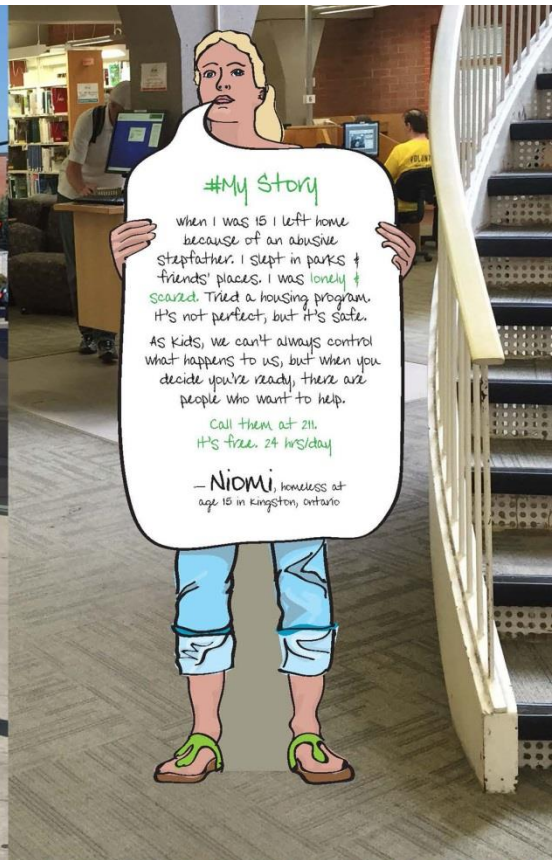 #My Story
when I was 15 I left home
because of an abusive
stepfather. I slept in parks &
friends' places. I was lonely &
scared. Tried a housing program.
It's not perfect, but it's safe.
As kids, we can't always control
what happens to us, but when you
decide you're ready, there are
people who want to help.
Call them at 211.
It's free. 24 hrs/day
— Niomi, homeless at
age 15 in Kingston, Ontario
VOLUNT